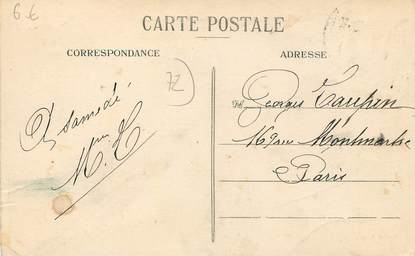 6 €
CARTE POSTALE
CORRESPONDANCE
ADRESSE
72
A samedi
M. T
Georges Taupin
169 rue Montmartre
Paris